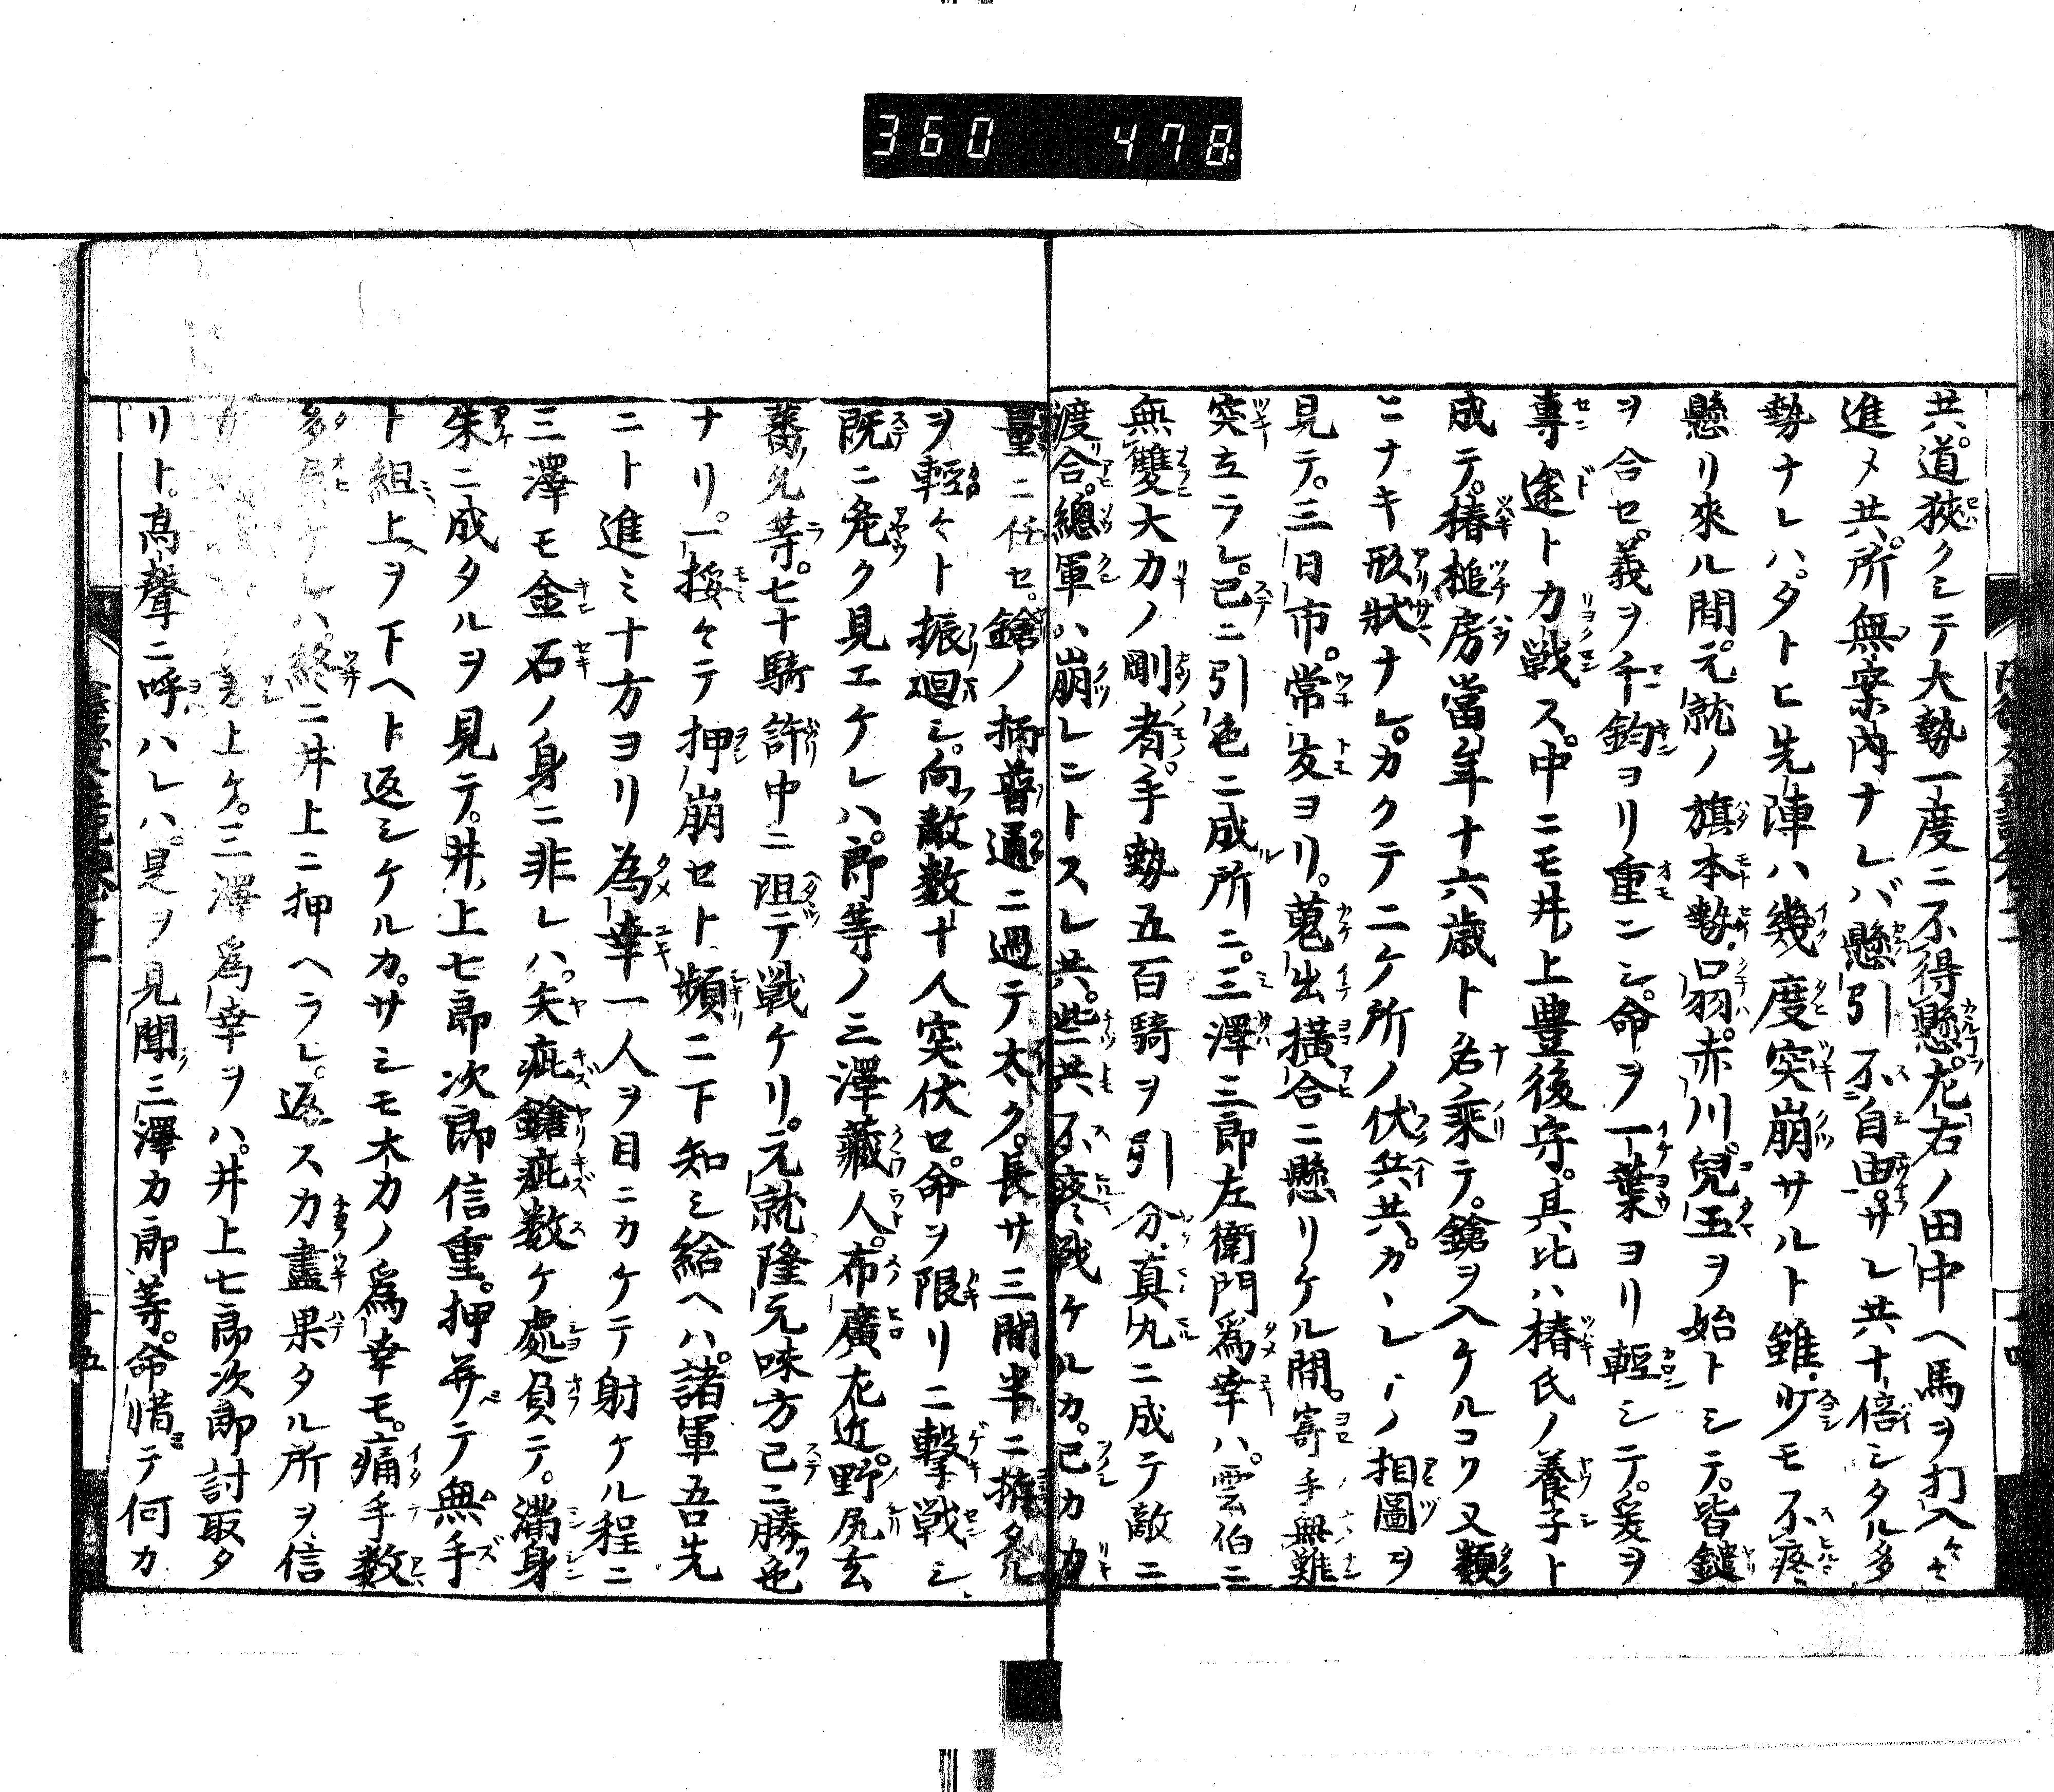 360 478
共。道狹クシテ大勢一度ニ不得懸。左右ノ田中ヘ馬ヲ打入々々
進メ共。所無案內ナレバ懸引不自由。サレ共十倍シタル多
勢ナレハ。タトヒ先陣ハ幾度突崩サルト雖。少モ不疼
懸リ來ル間。元就ノ旗本勢。口羽。赤川。兒玉ヲ始トシテ。皆鑓
ヲ合セ。義ヲ千鈞ヨリ重ンシ。命ヲ一葉ヨリ輕シテ。爰ヲ
專途ト力戰ス。中ニモ井上豊後守。其比ハ椿氏ノ養子ト
成テ。椿槌房當年十六歳ト名乘テ。鎗ヲ入ケルコソ又類
ヒナキ形狀ナレ。カクテ二ケ所ノ伏兵共。カヽレヽノ相圖ヲ
見テ。三日市。常友ヨリ。蒐出橫合ニ懸リケル間。寄手無難
突立ラレ。已ニ引色ニ成所ニ。三澤三郎左衛門爲幸ハ。雲伯ニ
無雙大力ノ剛者。手勢五百騎ヲ引分。真丸ニ成テ敵ニ
渡合。總軍ハ崩レントスレ共。些共不疼戰ケルカ。己カ力
量ニ任セ。鎗ノ柄普通ニ過テ太ク。長サ三間半ニ拵タル
ヲ輕々ト振廻シ。向敵数十人突伏ロ。命ヲ限リニ擊戰シ、
既ニ危ク見エケレハ。郎等ノ三澤藏人。布廣左近。野尻玄
蕃允等。七十騎許中ニ阻テ戰ケリ。元就隆元味方已ニ勝色
ナリ。一按々テ押崩セト頻ニ下知シ給ヘハ。諸軍吾先
ニト進ミ十方ヨリ為幸一人ヲ目ニカケテ射ケル程ニ
三澤モ金石ノ身ニ非レハ。矢疵鎗疵数ケ處負テ。滿身
朱ニ成タルヲ見テ。井上七郎次郎信重。押并テ無手
ト組。上ヲ下ヘト返シケルカ。サシモ大力ノ爲幸モ。痛手数
多負ケレハ。終ニ井上ニ押ヘラレ。返ス力盡果タル所ヲ信
上ケ。三澤爲幸ヲハ。井上七郎次郎討取タ
リト。高聲ニ呼ハレハ。是ヲ見聞三澤カ郎等。命惜テ何カ
十四
十五